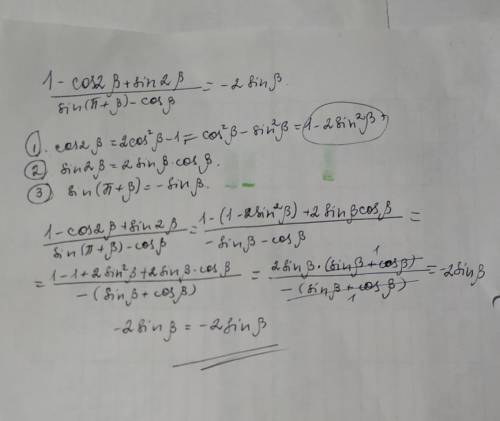 (1 - cos2β + sin2β) / (sin(π+β) - cosβ) = -2 sinβ.
① cos2β = 2cos²β - 1 = cos²β - sin²β = 1 - 2sin²β
② sin2β = 2sinβ·cosβ.
③ sin(π+β) = -sinβ.
(1 - cos2β + sin2β) / (sin(π+β) - cosβ) = (1 - (1 - 2sin²β) + 2sinβcosβ) / (-sinβ - cosβ) =
= (1 - 1 + 2sin²β + 2sinβ·cosβ) / (-(sinβ + cosβ)) = (2sinβ·(sinβ + cosβ) 1) / (-(sinβ + cosβ) 1) = -2sinβ
-2sinβ = -2sinβ